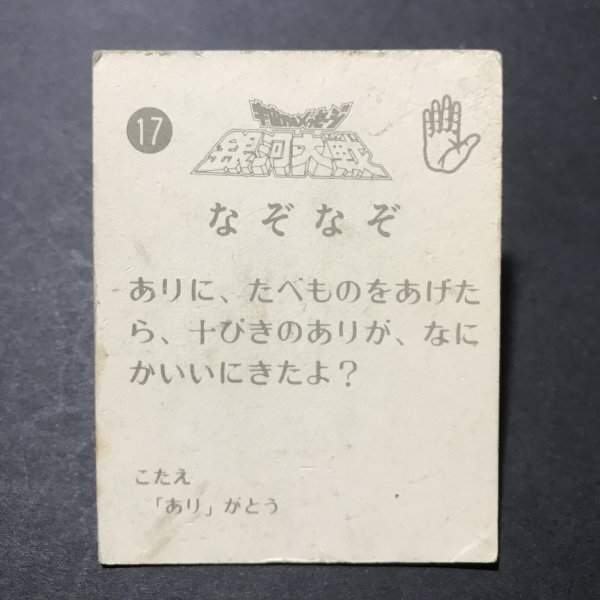 17
宇宙からのメッセージ
銀河大戦
なぞなぞ
ありに、たべものをあげた
ら、十ぴきのありが、なに
かいいにきたよ？
こたえ
「あり」がとう